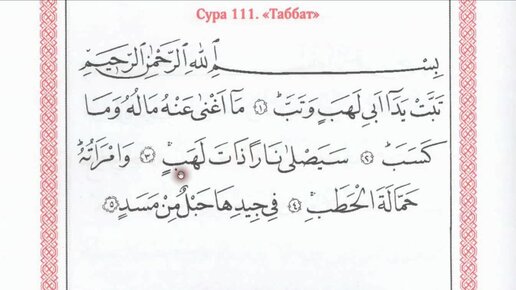 Сура 111. «Таббат»
بِسْــــــــمِ اللهِ الرَّحْمٰنِ الرَّحِيمِ
تَبَّتْ يَدَٓا اَبِى لَهَبٍ وَتَبَّۜ ﴿١﴾ مَٓا اَغْنٰى عَنْهُ مَالُهُ وَمَا
كَسَبَۜ ﴿٢﴾ سَيَصْلٰى نَارًا ذَاتَ لَهَبٍۚ ﴿٣﴾ وَامْرَاَتُهُۜ
حَمَّالَةَ الْحَطَبِۚ ﴿٤﴾ فِى جِيدِهَا حَبْلٌ مِنْ مَسَدٍ ﴿٥﴾